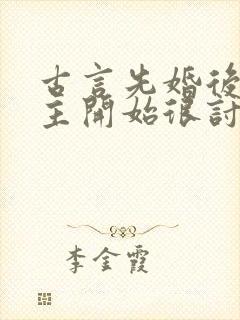 古言先婚後
主開始很討
李金霞